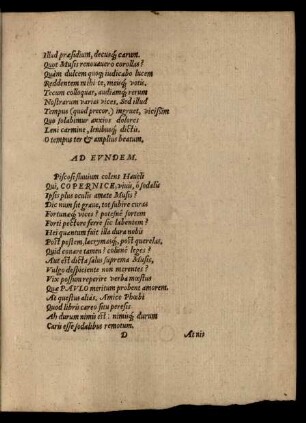 Illud præsidium, decusq́; carum.
Quot Musis renouauero corollas?
Quàm dulcem quoq; iudicabo lucem
Reddentem mihi te, meiśq́; votis,
Tecum colloquar, audiamq́; rerum
Nostrarum varias vices, Sed illud
Tempus (quod precor,) ingruet, vicissim
Quo solabimur anxios dolores
Leni carmine, lenibusq́; dictis.
O tempus ter & amplius beatum,
AD EVNDEM.
Piscosi flauium colens
Qui, COPERNICE, viuis, ô sodalis
Ipsis plus oculis amate Musis?
Dic num fie graue, tot subire curas
Fortunæq́; vices? potesnè fortem
Forti pectore ferre sic labentem?
Hei quantum fuit illa dura nobis
Post postem, lacrymasq́;, post querelas,
Quid conare tamen? colunè leges?
Aut est dicta salus suprema Musis,
Vulgo despiciente non merentes?
Vix possum reperire verba mœstus
Quæ PAVLO meritum probent amorem.
At questus alias, Amice Phœbi
Quod libris careo situ peresis
Ah durum nimis est: nimiśq́; durum
Caris esse sodalibus remotum.
D At nis